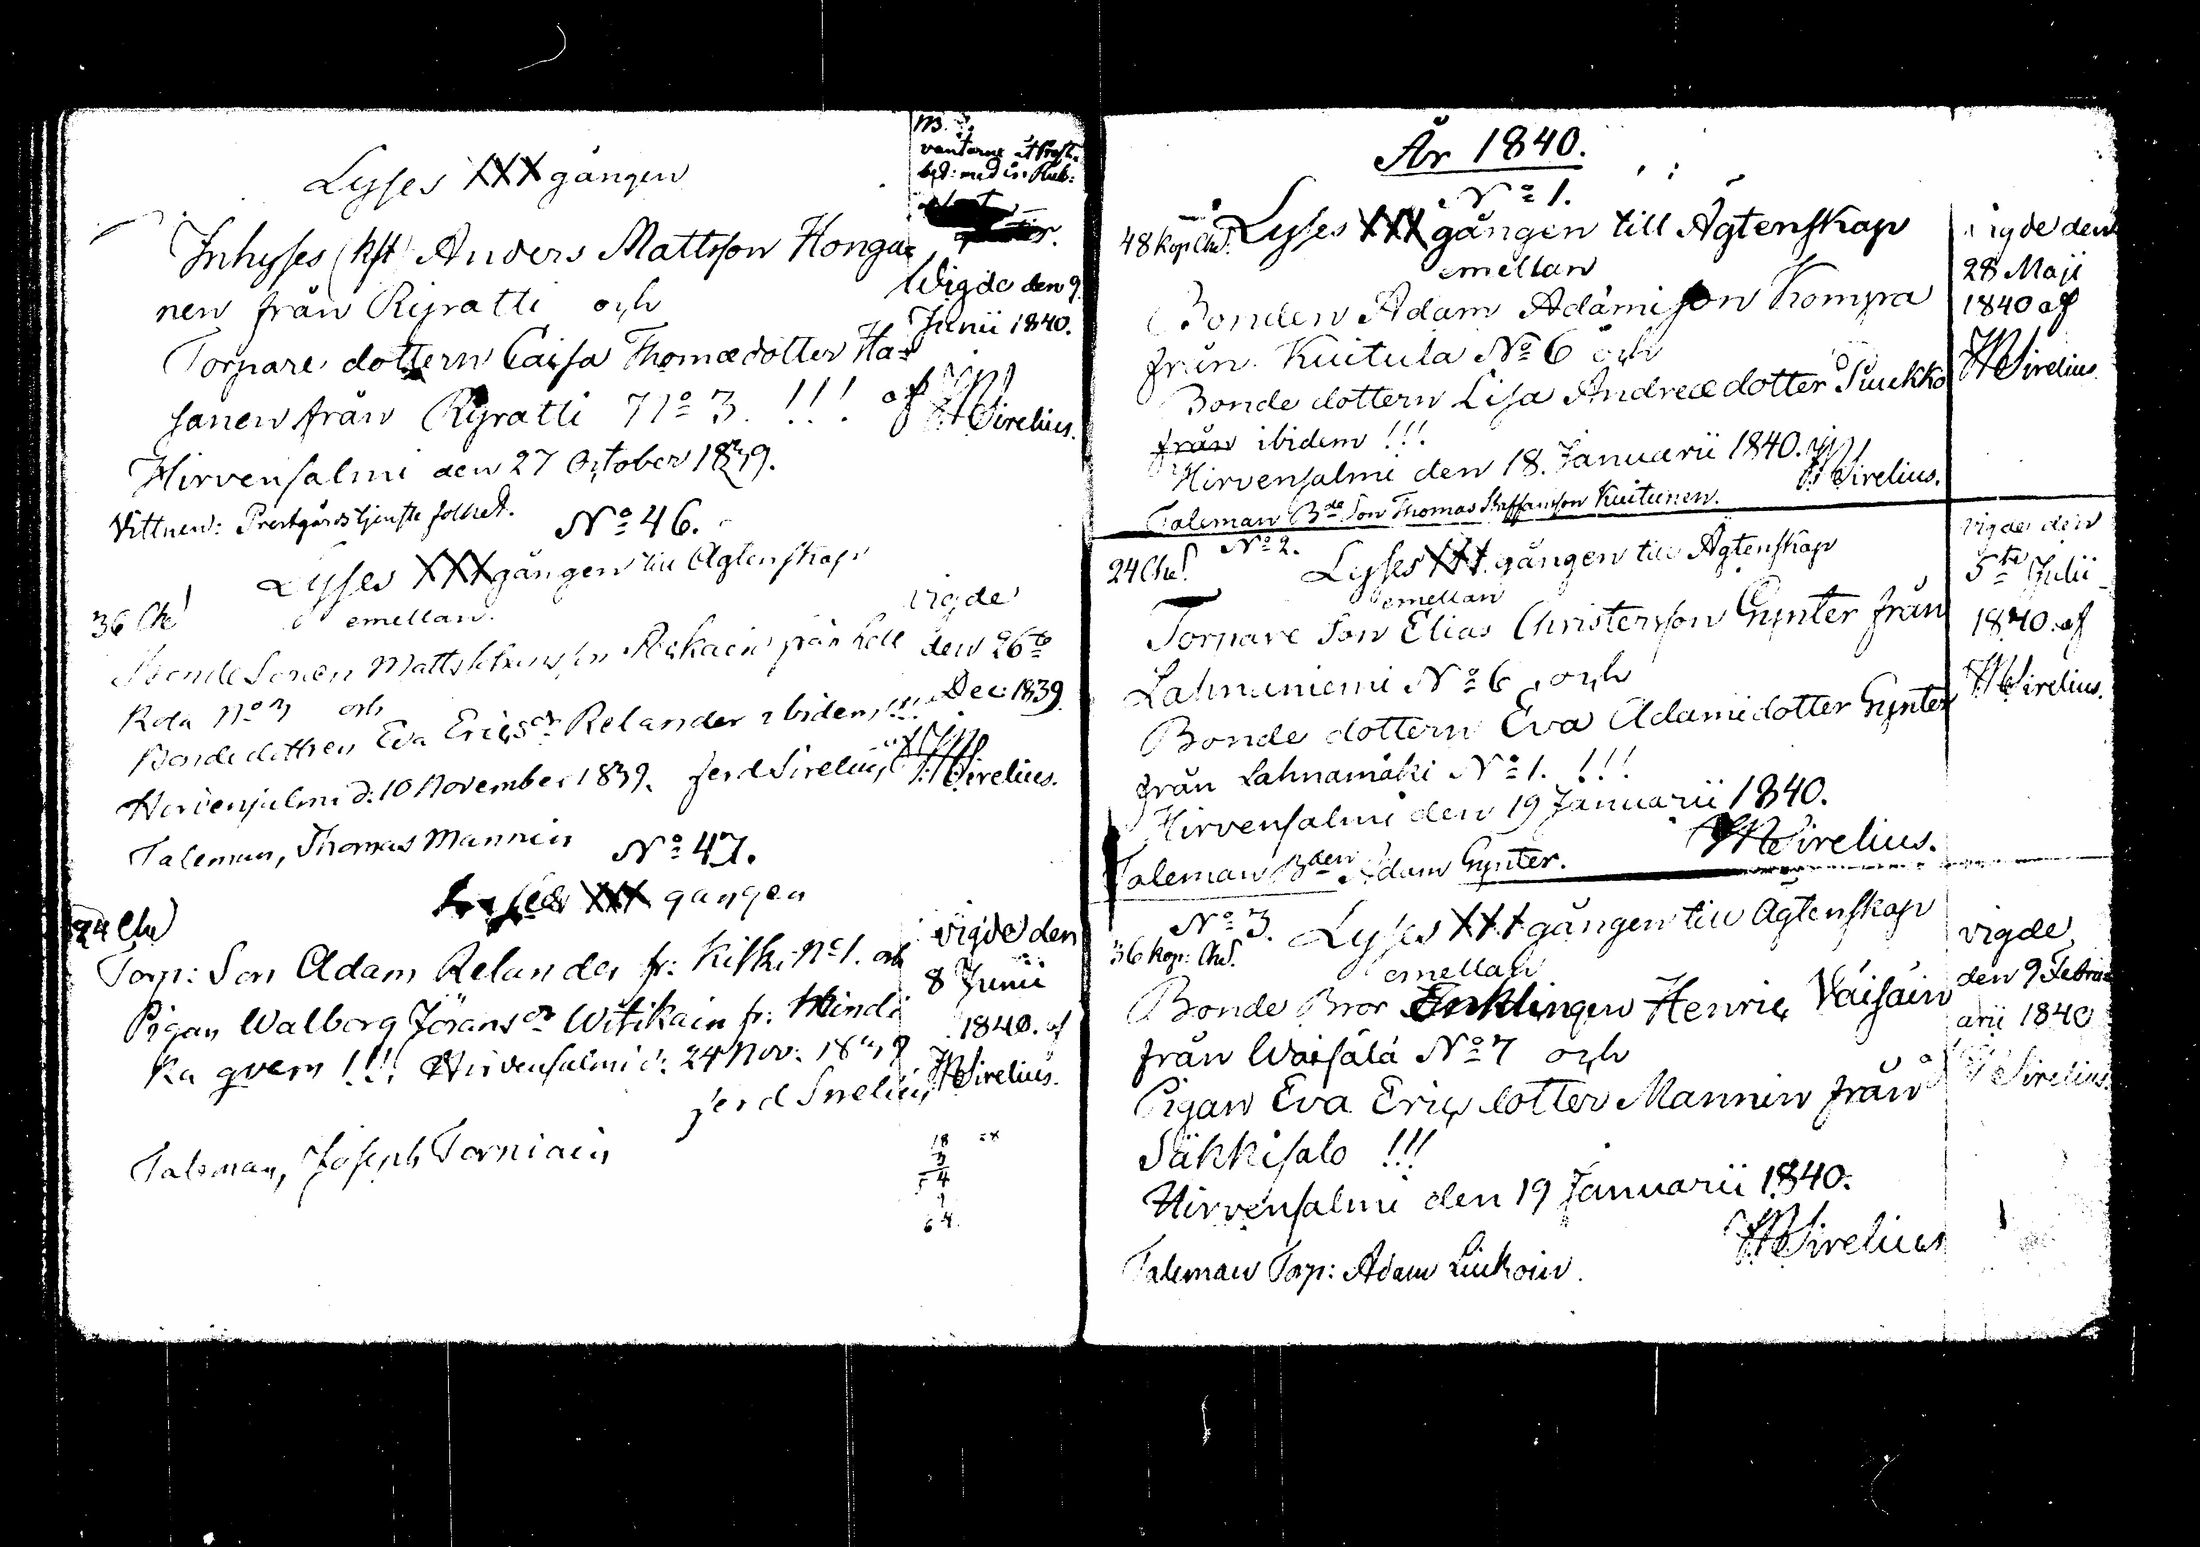 Lysses XXX gången
Inhyses (kst) Anders Mattsson Honga=
nen från Ryratti och
Torpare dottern Caisa Thomædotter Ha=
sanen från Ryratti No 3. !!!
Hirvensalmi den 27 October 1839.
Vittnen: Prestgårds tjenste folket.
vantarne
Wigde den 9
Junii 1840.
af
Sirelius.
No 46.
36 Ch!
Lysses XXX gången till Ägtenskap
emellan
Bonde Sonen Matts
Kola No och
Bonde dottren Eva Ericsdr Relander ibidem !!!
Hirvensalmi d: 10 November 1839. Ferd Sirelius
Taleman, Thomas Mannin
vigde
den 26te
Dec: 1839
Sirelius.
No 47.
Lysses XXX gången
24 Ch!
Torp: Son Adam Relander fr: No 1. och
Pigan Walborg Jöransdr Witikain fr: Hindi
ka qvern !!! Hirvensalmi d: 24 Nov: 1839
Ferd Sirelius
Taleman, Joseph Torniain
vigde den
8 Junii
1840. af
Sirelius.
18
3
4
64.
År 1840.
No 1.
48 kop: Ch!
Lysses XXX gången till Ägtenskap
emellan
Bonden Adam Adamisson Kompa
från Kuitula No 6 och
Bonde dottern Lisa Andreædotter Suukko
från ibidem !!!
Hirvensalmi den 18. Januarii 1840.
Sirelius.
Taleman Bde Son Thomas Staffansson Kuitunen.
vigde den
28 Maji
1840 af
Sirelius.
No 2.
24 Ch!
Lysses XXX gången till Ägtenskap
emellan
Torpare Son Elias Christersson Gynter från
Lahnaniemi No 6 och
Bonde dottern Eva Adamidotter Gynter
från Lahnamäki No 1. !!!
Hirvensalmi den 19 Januarii 1840.
Sirelius.
Taleman Bden Adam Gynter.
vigde den
5te Julii
1840. af
Sirelius.
No 3.
36 kop: Ch!
Lysses XXX gången till Ägtenskap
emellan
Bonde Bror Enklingen Henric Väisäin
från Wäisälä No 7 och
Pigan Eva Ericsdotter Mannin från
Säkkisalo !!!
Hirvensalmi den 19 Januarii 1840.
Sirelius
Taleman Torp: Adam Liukoin.
vigde
den 9 Febru
arii 1840
af
Sirelius.